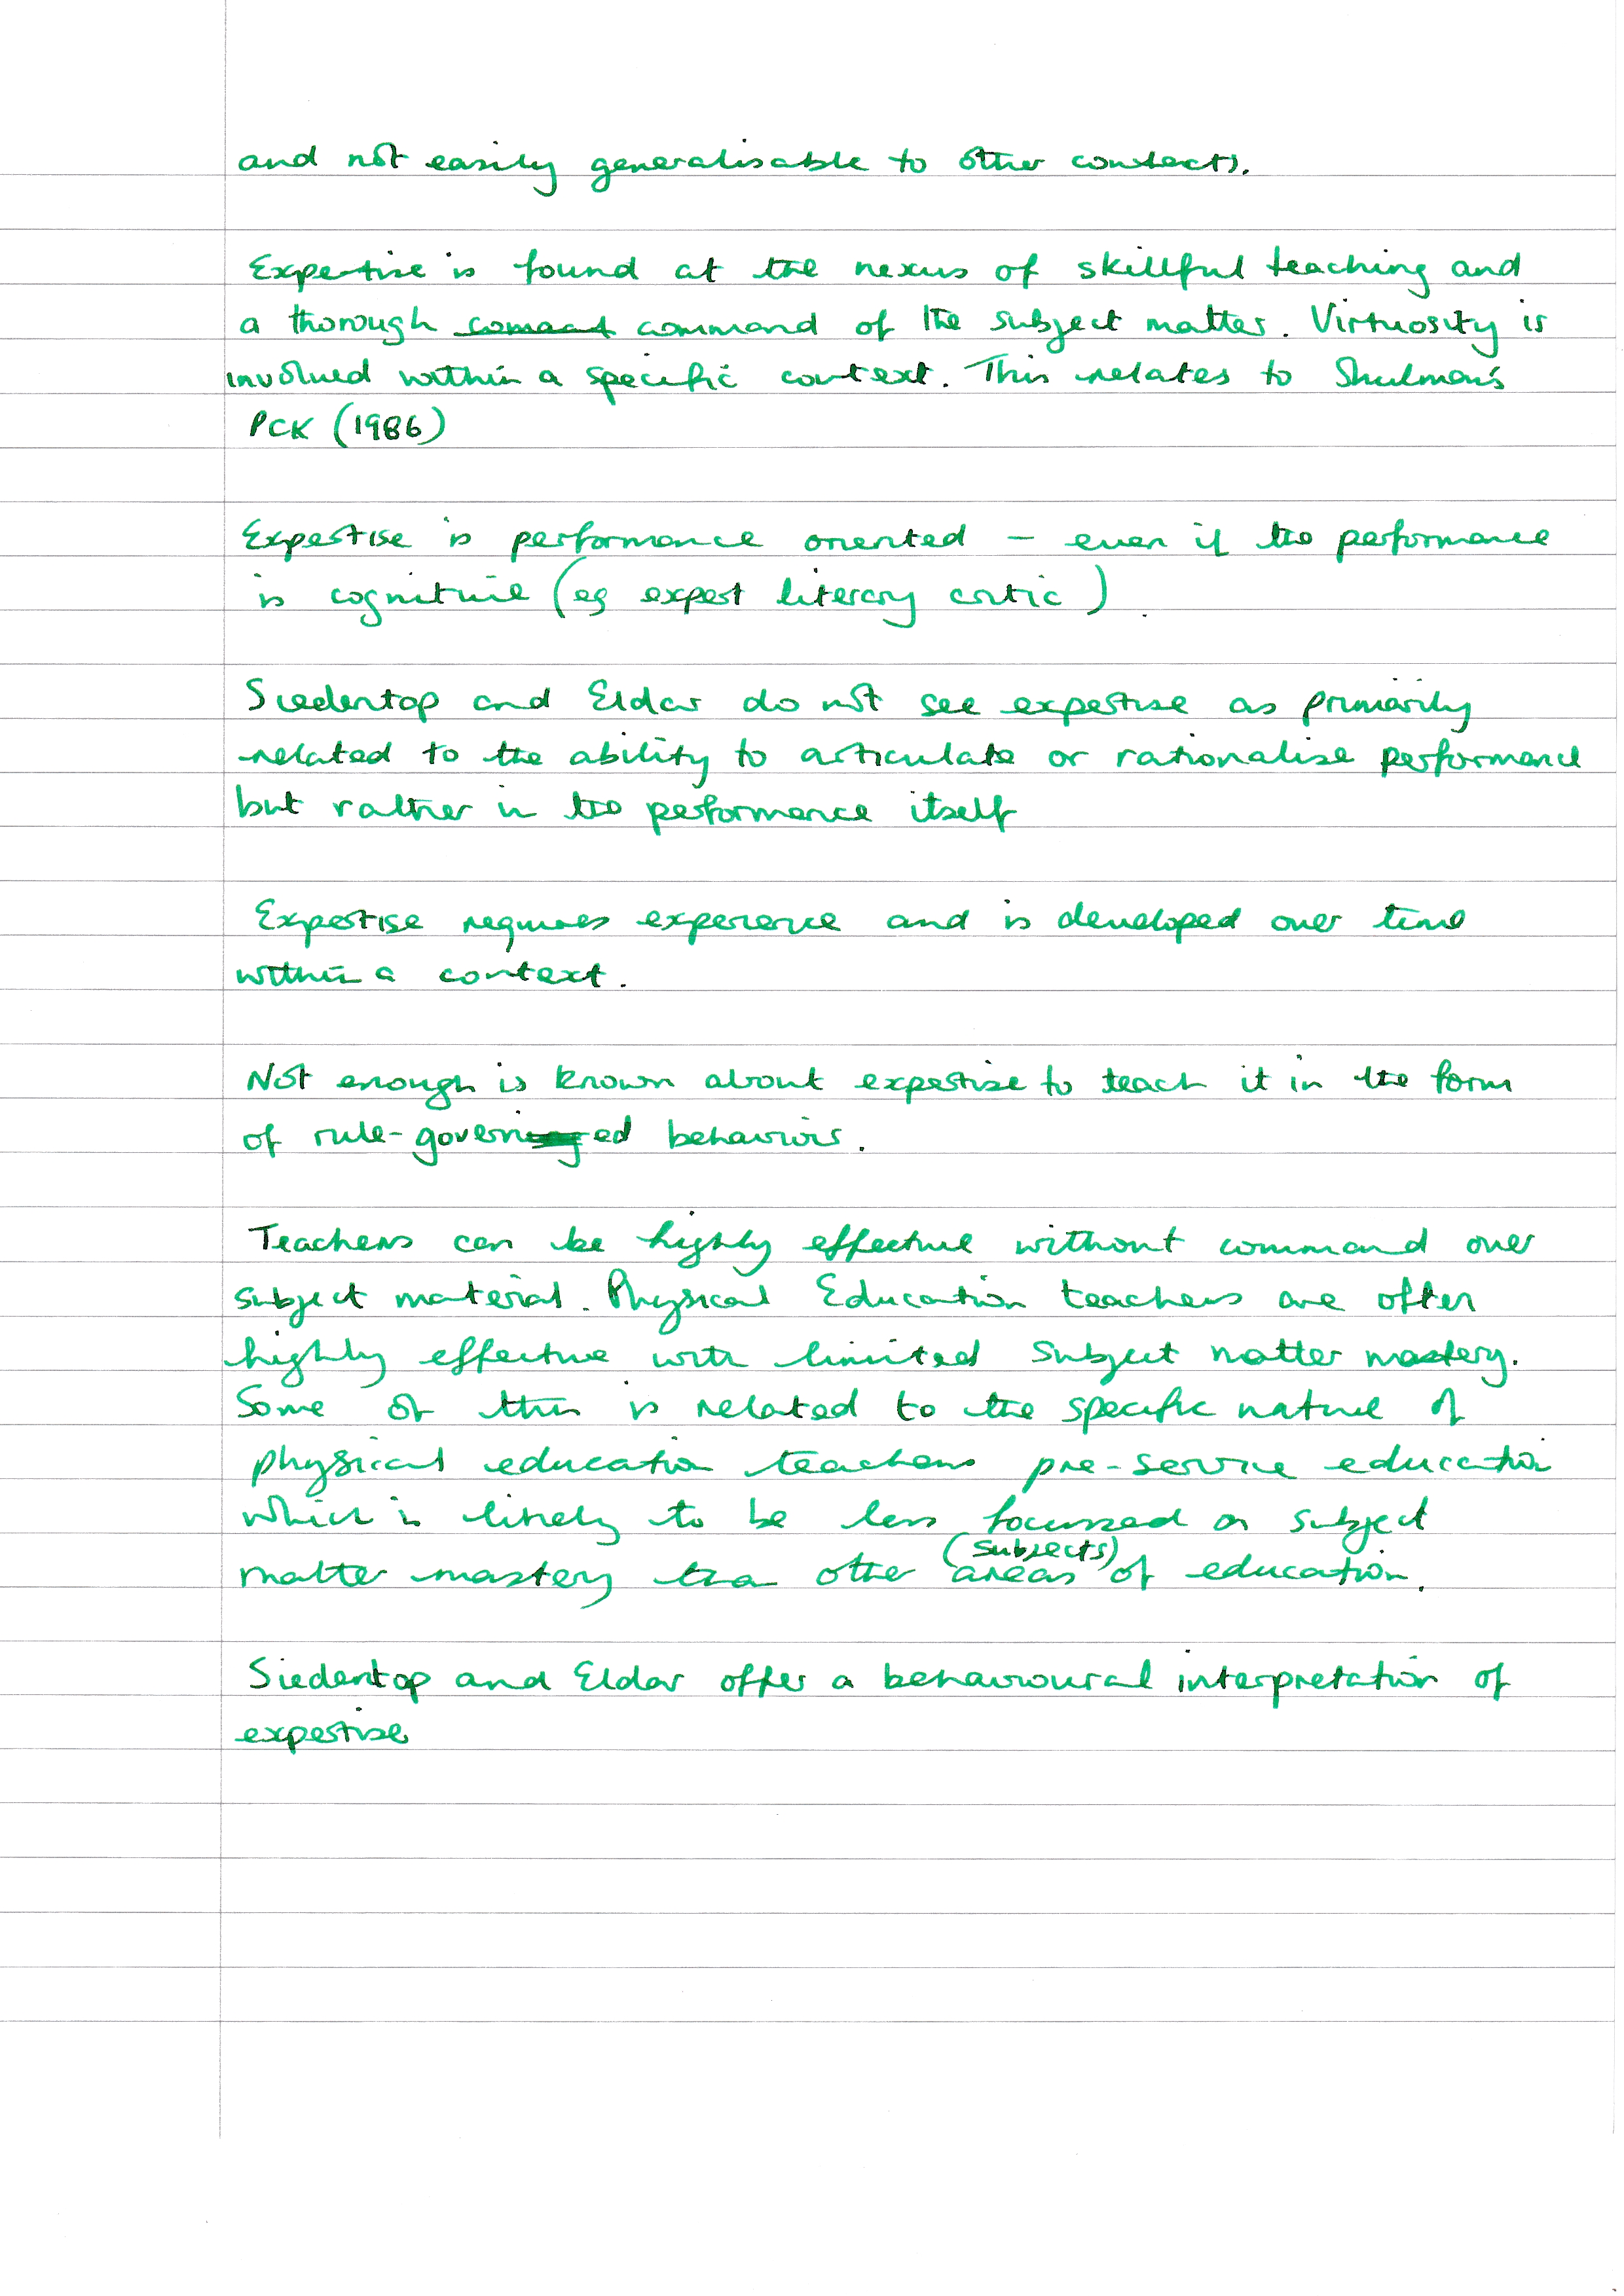 and not easily generalisable to other contexts.
Expertise is found at the nexus of skillful teaching and
a thorough comact command of the subject matter. Virtuosity is
involved within a specific context. This relates to Shulman's
PCK (1986)
Expertise is performance oriented – even if the performance
is cognitive (eg expert literary critic).
Siedentop and Eldar do not see expertise as primarily
related to the ability to articulate or rationalise performance
but rather in the performance itself
Expertise requires experience and is developed over time
within a context.
Not enough is known about expertise to teach it in the form
of rule-governed behaviors.
Teachers can be highly effective without command over
subject material. Physical Education teachers are often
highly effective with limited subject matter mastery.
Some of this is related to the specific nature of
physical education teachers pre-service education
which is likely to be less focussed on subject
(subjects)
matter mastery than other areas of education.
Siedentop and Eldar offer a behavioural interpretation of
expertise